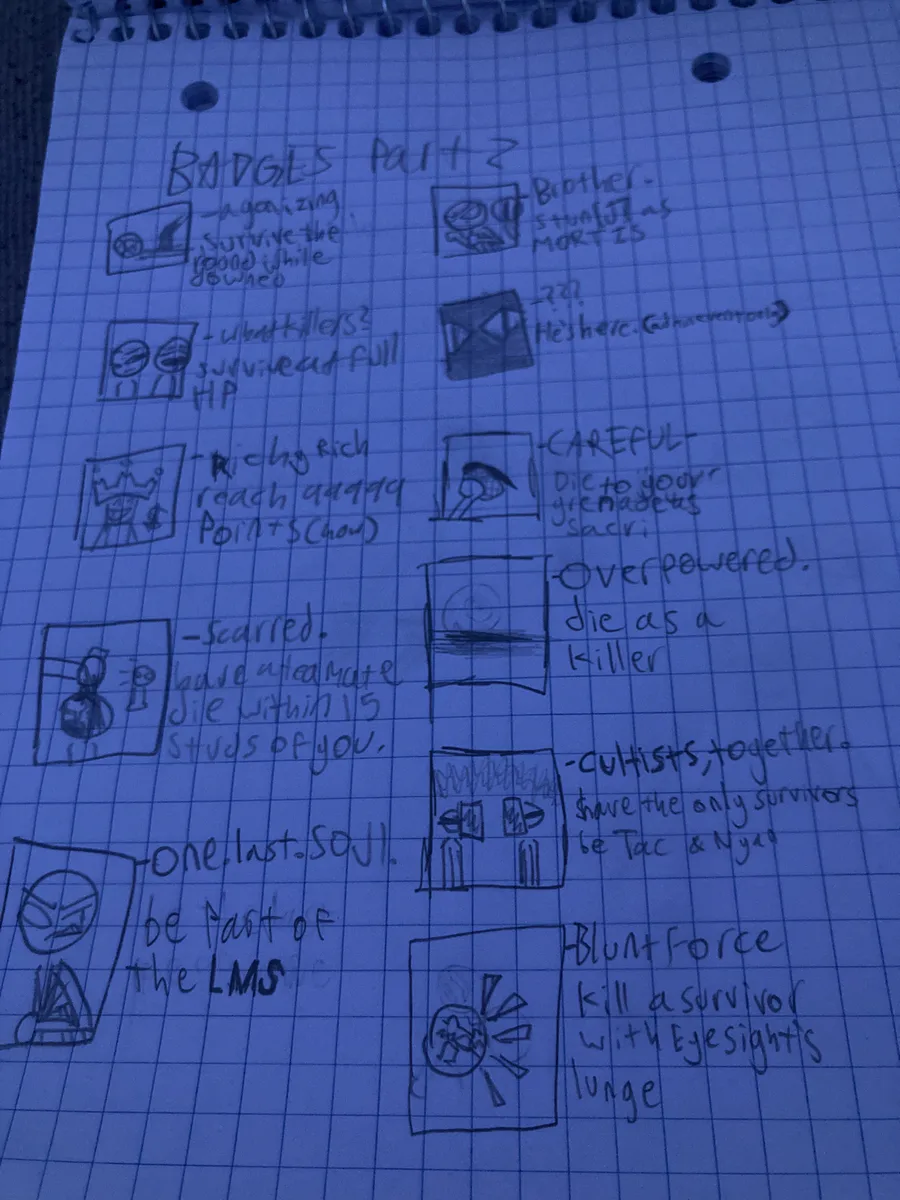 BADGES Part 2
-agonizing.
survive the
round while
downed
-what killers?
survive at full
HP
-Richy Rich
reach 99999
Points (how)
-scarred.
have a teamate
die within 15
studs of you.
-One.last.SOUl.
be Part of
the LMS
-Brother.
stun as
MORTIS
-???
He's here. (only)
-CAREFUL-
Die to your
grenade as
sacri.
-Overpowered.
die as a
killer
-Cultists, together.
have the only survivors
be Tac & Nyad
-Blunt Force
kill a survivor
with Eyesight's
lunge